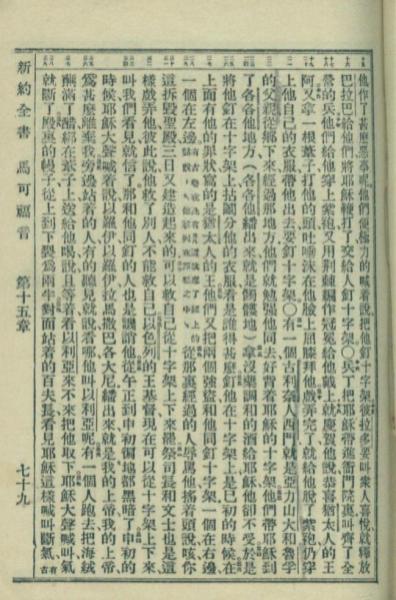 他作了甚麽惡事呢他們便極力的喊着說把他釘十字架彼拉多要叫衆人喜悅就釋放
巴拉巴給他們將耶穌鞭打了交給人釘十字架○兵丁把耶穌帶進衙門院裏叫齊了全
營的兵他們給他穿上紫袍又用荊棘編作冠冕給他戴上就慶賀他說恭喜猶太人的王
阿又拿一根葦子打他的頭吐唾沫在他臉上屈膝拜他戲弄完了就給他脫了紫袍仍穿
上他自己的衣服帶他出去要釘十字架○有一個古利奈人西門就是亞力山大和魯孚
的父親從鄉下來經過那地方他們就勉強他同去好背着耶穌的十字架他們帶耶穌到
了各各他地方(各各他繙出來就是髑髏地)拿沒藥調和的酒給耶穌他卻不受於是
將他釘在十字架上拈鬮分他的衣服看是誰得甚麽釘他在十字架上是巳初的時候在
上面有他的罪狀寫的是猶太人的王他們又把兩個強盜和他同釘十字架一個在右邊
一個在左邊從那裏經過的人辱罵他搖着頭說咳你
這拆毀聖殿三日又建造起來的可以救自己從十字架上下來罷祭司長和文士也是這
樣戲弄他彼此說他救了別人不能救自己以色列的王基督現在可以從十字架上下來
叫我們看見就信了那和他同釘的人也是譏誚他從午正到申初徧地都黑暗了申初的
時候耶穌大聲喊着說以羅伊以羅伊拉馬撒巴各大尼繙出來就是我的上帝我的上帝
爲甚麽離棄我旁邊站着的人有的聽見就說看哪他叫以利亞呢有一個人跑去把海絨
蘸滿了醋綁在葦子上送給他喝說且等着看以利亞來不來把他取下耶穌大聲喊叫氣
就斷了殿裏的幔子從上到下裂爲兩半對面站着的百夫長看見耶穌這樣喊叫斷氣有古
新約全書 馬可福音 第十五章 七十九